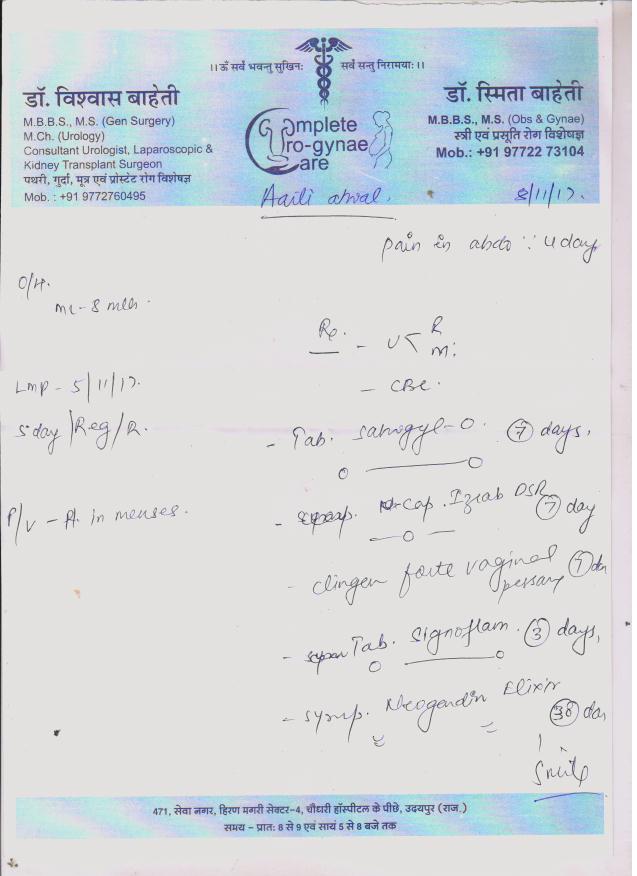 ।। ॐ सर्वे भवन्तु सुखिनः सर्वे सन्तु निरामयाः ।।
डॉ. विश्वास बाहेती
M.B.B.S., M.S. (Gen Surgery)
M.Ch. (Urology)
Consultant Urologist, Laparoscopic &
Kidney Transplant Surgeon
पथरी, गुर्दा, मूत्र एवं प्रोस्टेट रोग विशेषज्ञ
Mob. : +91 9772760495
Complete
Uro-gynae
Care
डॉ. स्मिता बाहेती
M.B.B.S., M.S. (Obs & Gynae)
स्त्री एवं प्रसूति रोग विशेषज्ञ
Mob.: +91 97722 73104
8/11/17.
pain in abdo ∵ 4 day
O/H.
Rx.
- U < R
M:
- CBC.
LMP - 5/11/17.
5 day / Reg / R.
- Tab. Satrogyl-O. 7 days,
P/V - Pt. in menses.
- Cap. Izrab DSR 7 day
- clingen forte vaginal
pessary 7 da
- Tab. Signoflam. 3 days,
- syrup. Neogadin Elixir
day
471, सेवा नगर, हिरण मगरी सेक्टर-4, चौधरी हॉस्पीटल के पीछे, उदयपुर (राज.)
समय – प्रातः 8 से 9 एवं सायं 5 से 8 बजे तक